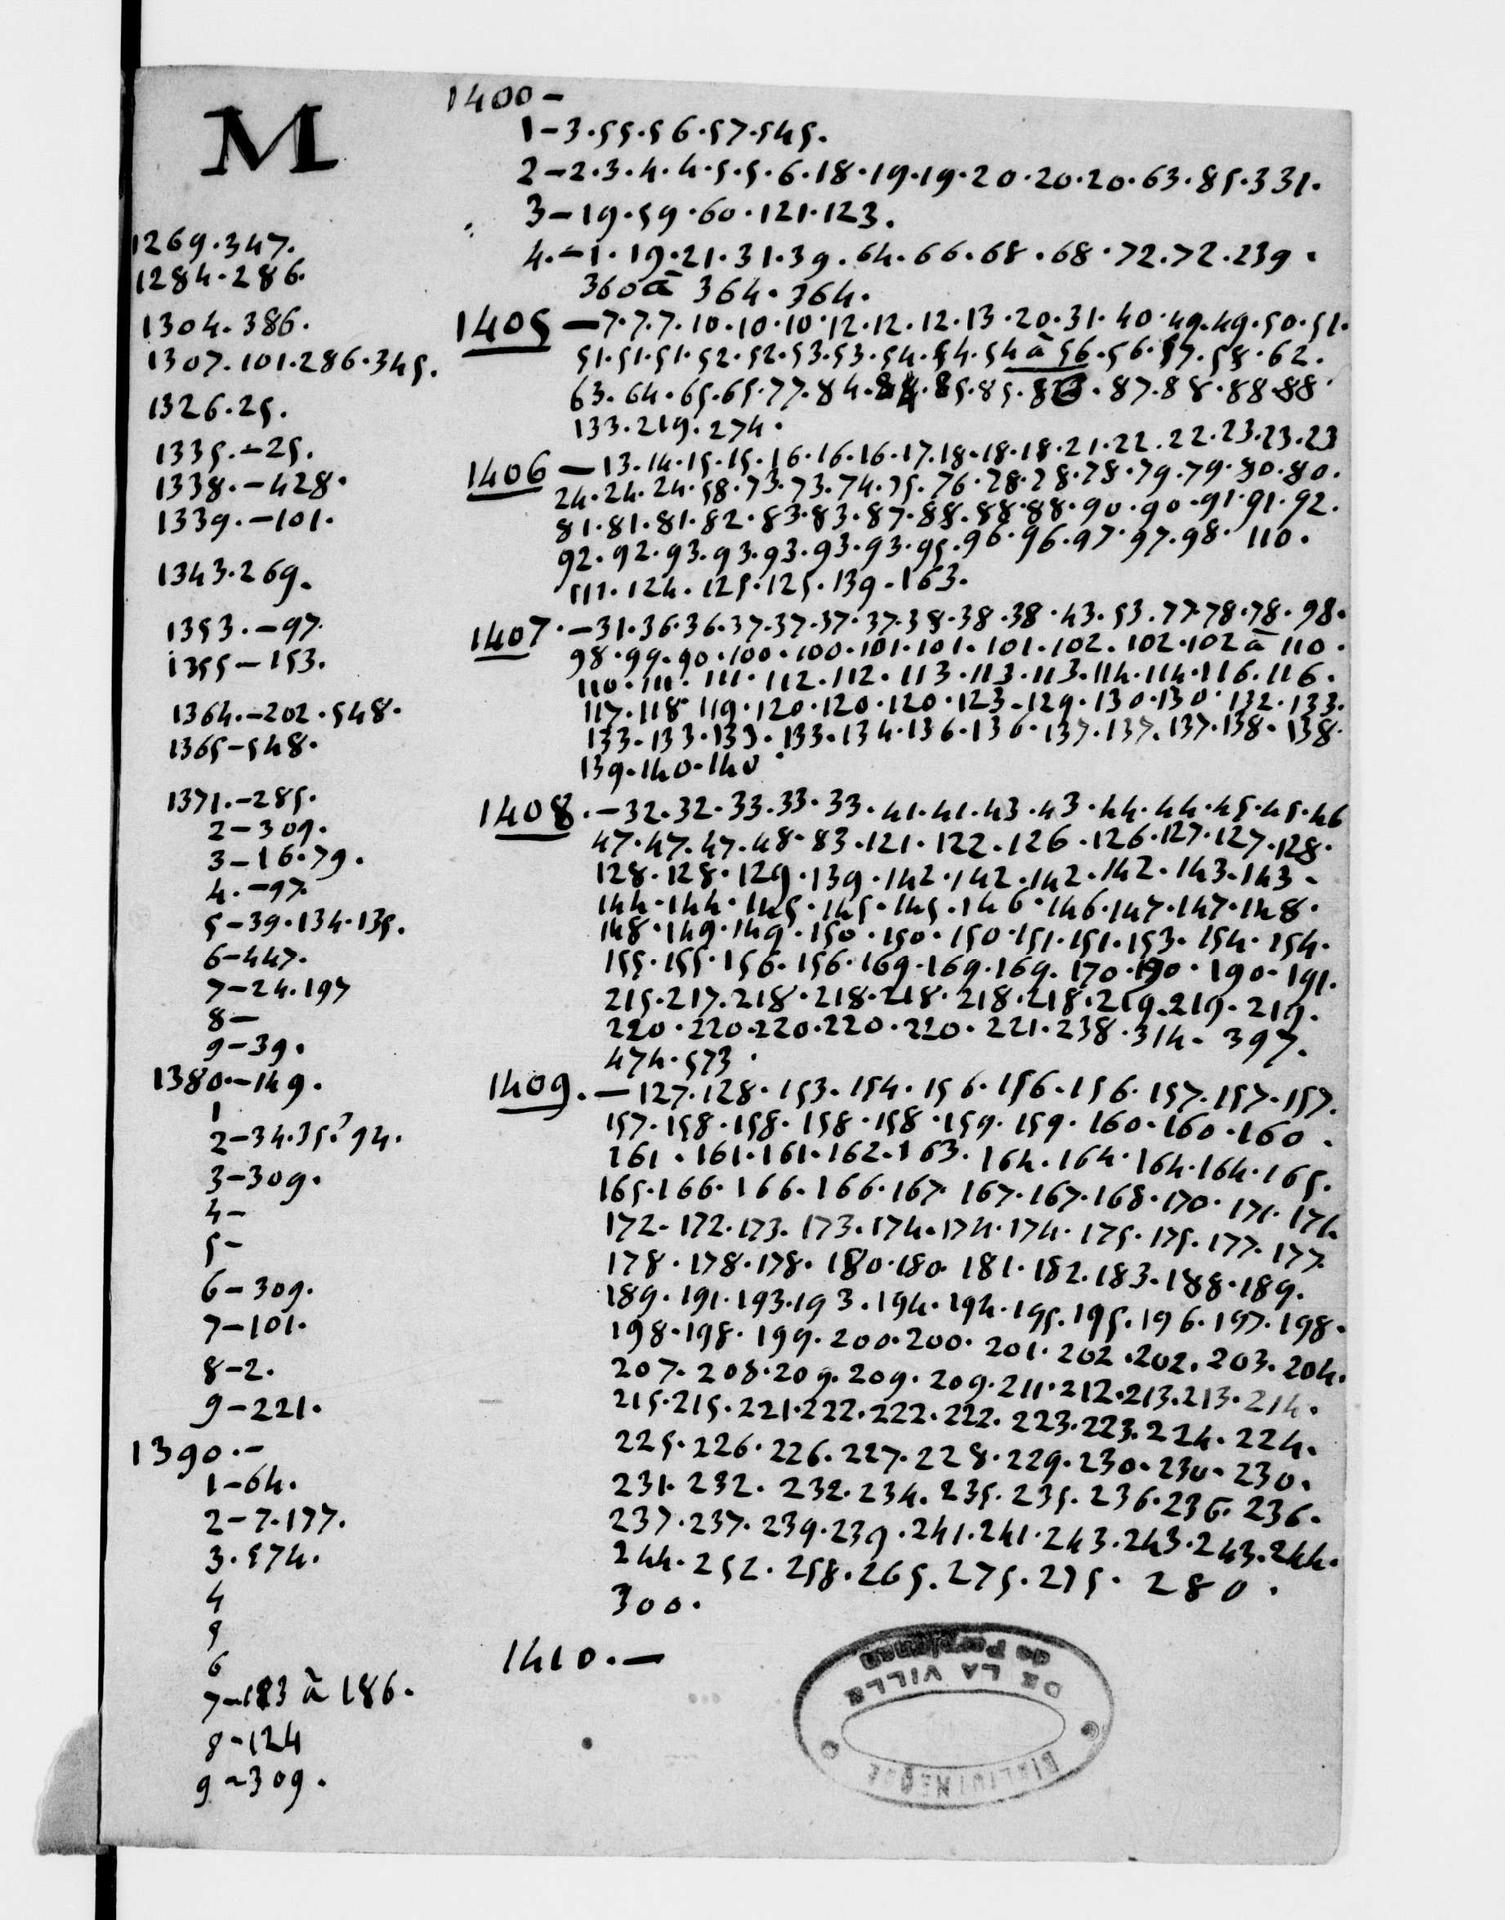 M
1269.347.
1284.286.
1304.386.
1307.101.286.345.
1326.25.
1335.-25.
1338.-428.
1339.-101.
1343.269.
1353.-97.
1355-153.
1364.-202.548.
1365-548.
1371.-285.
2-309.
3-16.79.
4.-97.
5-39.134.135.
6-447.
7-24.197
8-
9-39.
1380.-149.
1
2-34.35.?94.
3-309.
4-
5-
6-309.
7-101.
8-2.
9-221.
1390.-
1-64.
2-7.177.
3.574.
4
5
6
7-183 à 186.
8-124
9-309.
1400-
1-3.55.56.57.545.
2-2.3.4.4.5.5.6.18.19.19.20.20.20.63.85.331.
3-19.59.60.121.123.
4.-1.19.21.31.39.64.66.68.68.72.72.239.
360 à 364.364.
1405-7.7.7.10.10.10.12.12.12.13.20.31.40.49.49.50.51.
51.51.51.52.52.53.53.54.54.54 à 56.56.57.58.62.
63.64.65.65.77.84.84.85.85.86.87.88.88.88
133.219.274.
1406-13.14.15.15.16.16.16.17.18.18.18.21.22.22.23.23.23
24.24.24.58.73.73.74.75.76.78.78.78.79.79.80.80.
81.81.81.82.83.83.87.88.88.88.90.90.91.91.92.
92.92.93.93.93.93.93.95.96.96.97.97.98.110.
111.124.125.125.139.163.
1407.-31.36.36.37.37.37.37.38.38.38.43.53.77.78.78.98.
98.99.90.100.100.101.101.101.102.102.102 à 110.
110.111.111.112.112.113.113.113.114.114.116.116.
117.118.119.120.120.120.123.129.130.130.132.133.
133.133.133.133.134.136.136.137.137.137.138.138.
139.140.140.
1408.-32.32.33.33.33.41.41.43.43.44.44.45.45.46
47.47.47.48.83.121.122.126.126.127.127.128.
128.128.129.139.142.142.142.142.143.143.
144.144.145.145.145.146.146.147.147.148.
148.149.149.150.150.150.151.151.153.154.154.
155.155.156.156.169.169.169.170.190.190.191.
215.217.218.218.218.218.218.219.219.219.
220.220.220.220.220.221.238.314.397.
474.573.
1409.-127.128.153.154.156.156.156.157.157.157.
157.158.158.158.158.159.159.160.160.160.
161.161.161.162.163.164.164.164.164.165.
165.166.166.166.167.167.167.168.170.171.171.
172.172.173.173.174.174.174.175.175.177.177.
178.178.178.180.180.181.182.183.188.189.
189.191.193.193.194.194.195.195.196.197.198.
198.198.199.200.200.201.202.202.203.204.
207.208.209.209.209.211.212.213.213.214.
215.215.221.222.222.222.223.223.224.224.
225.226.226.227.228.229.230.230.230.
231.232.232.234.235.235.236.236.236.
237.237.239.239.241.241.243.243.243.244.
244.252.258.265.275.275.280.
300.
1410.-
BIBLIOTHEQUE
DE LA VILLE